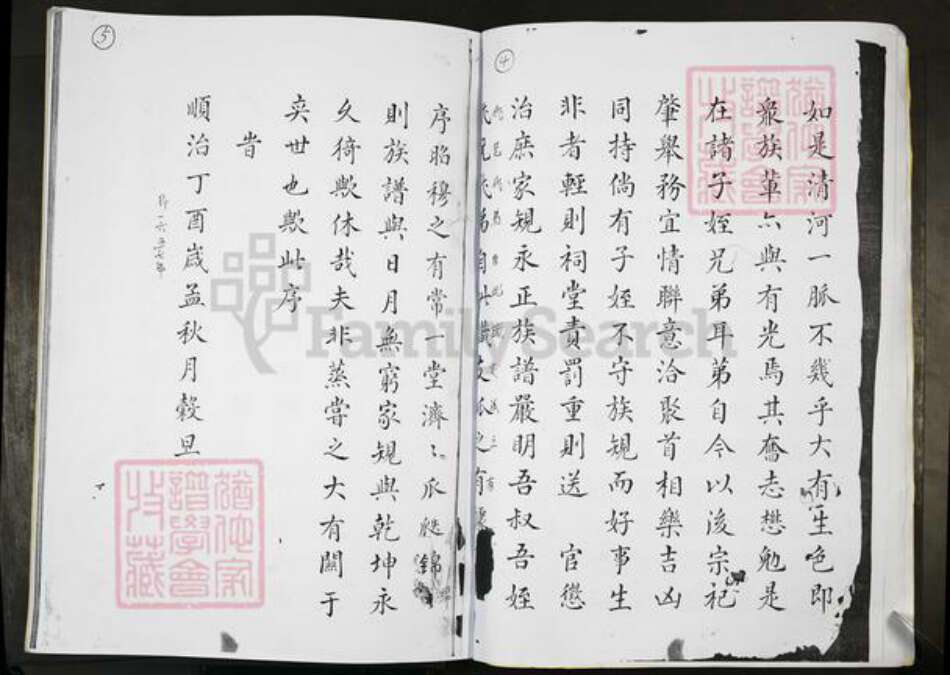 ④
如是清河一脈不幾乎大有生色即
衆族輩亦與有光焉其奮志懋勉是
在諸子姪兄弟耳弟自今以後宗祀
肇舉務宜情聯意洽聚首相樂吉凶
同持倘有子姪不守族規而好事生
非者輕則祠堂責罰重則送 官懲
治庶家規永正族譜嚴明吾叔吾姪
⑤
序昭穆之有常一堂濟〻瓜瓞錦
則族譜與日月無窮家規與乾坤永
久猗歟休哉夫非蒸嘗之大有關于
奕世也歟此序
旹
順治丁酉歲孟秋月穀旦
即一六五七年
猶他家
譜學會
收藏
猶他家
譜學會
收藏
FamilySearch